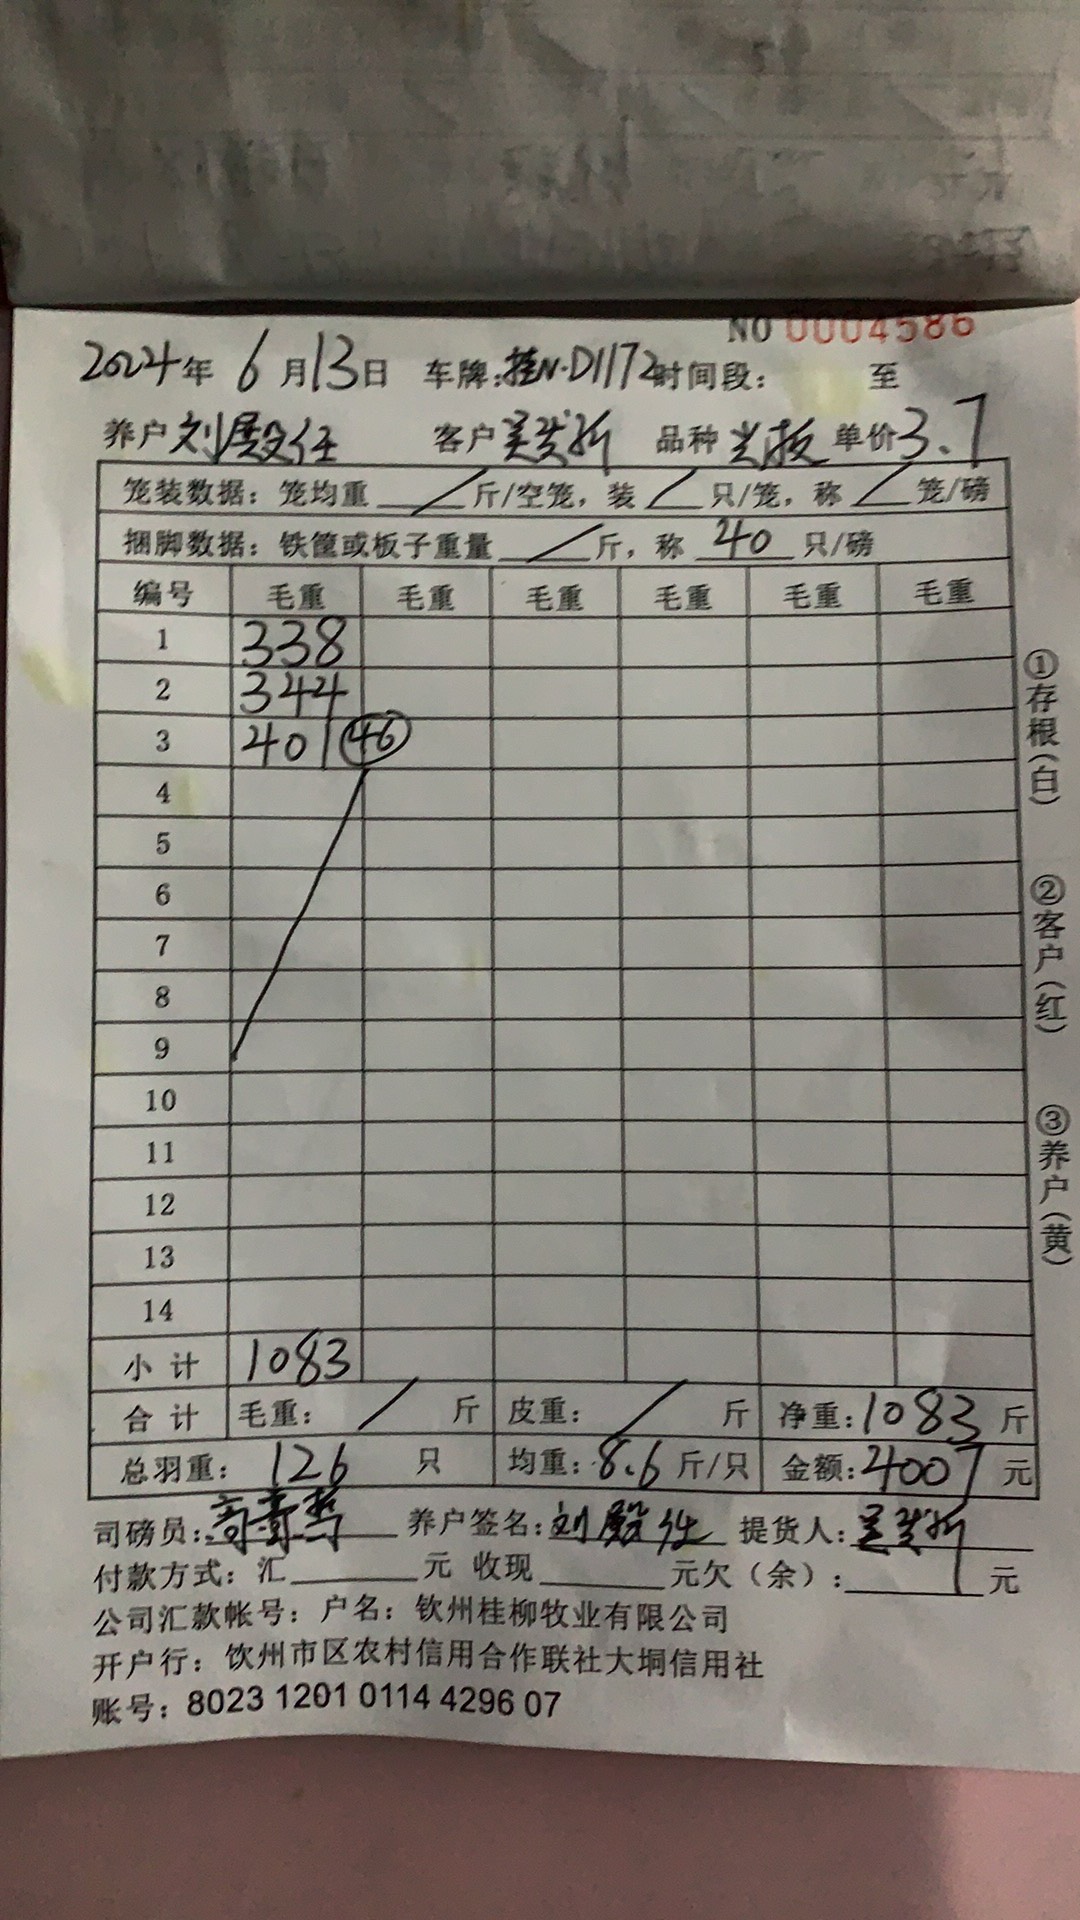 NO 0004586
2024年 6月13日 车牌:桂N·D1172时间段: 至
养户 刘殿任 客户 吴 品种 单价3.7
笼装数据:笼均重 / 斤/空笼,装 / 只/笼,称 / 笼/磅
捆脚数据:铁筐或板子重量 / 斤,称 40 只/磅
编号 毛重 毛重 毛重 毛重 毛重 毛重
1 338
2 344
3 401 46
4
5
6
7
8
9
10
11
12
13
14
小计 1083
合计 毛重: / 斤 皮重: / 斤 净重:1083 斤
总羽重: 126 只 均重:8.6 斤/只 金额:4007 元
司磅员: 养户签名:刘殿任 提货人:吴
付款方式:汇 元 收现 元欠(余): 元
公司汇款帐号:户名:钦州桂柳牧业有限公司
开户行:饮州市区农村信用合作联社大垌信用社
账号:8023 1201 0114 4296 07
①存根(白)
②客户(红)
③养户(黄)